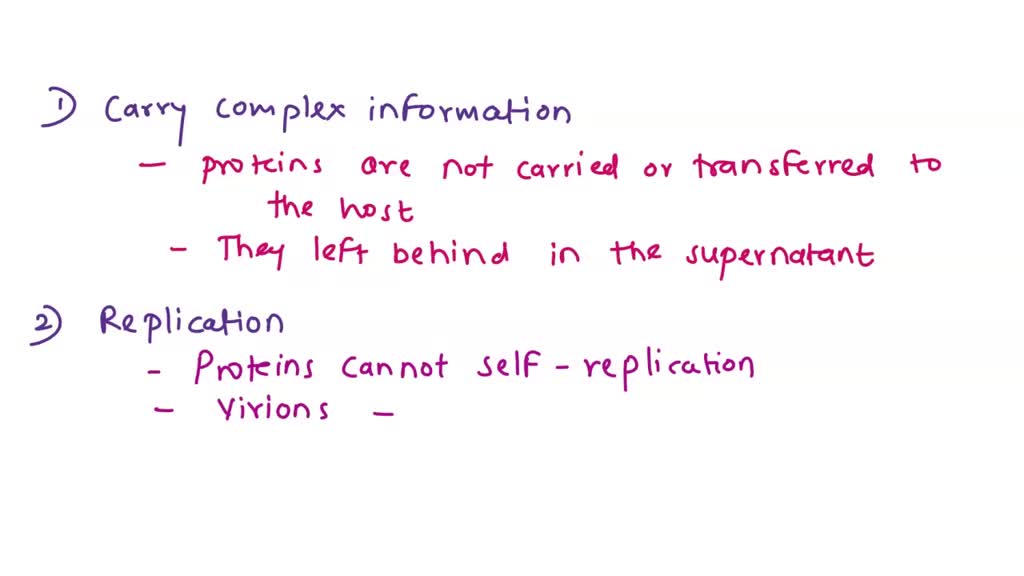 1) Carry complex information
- proteins are not carried or transferred to
the host
- They left behind in the supernatant
2) Replication
- Proteins cannot self-replication
- Virions -